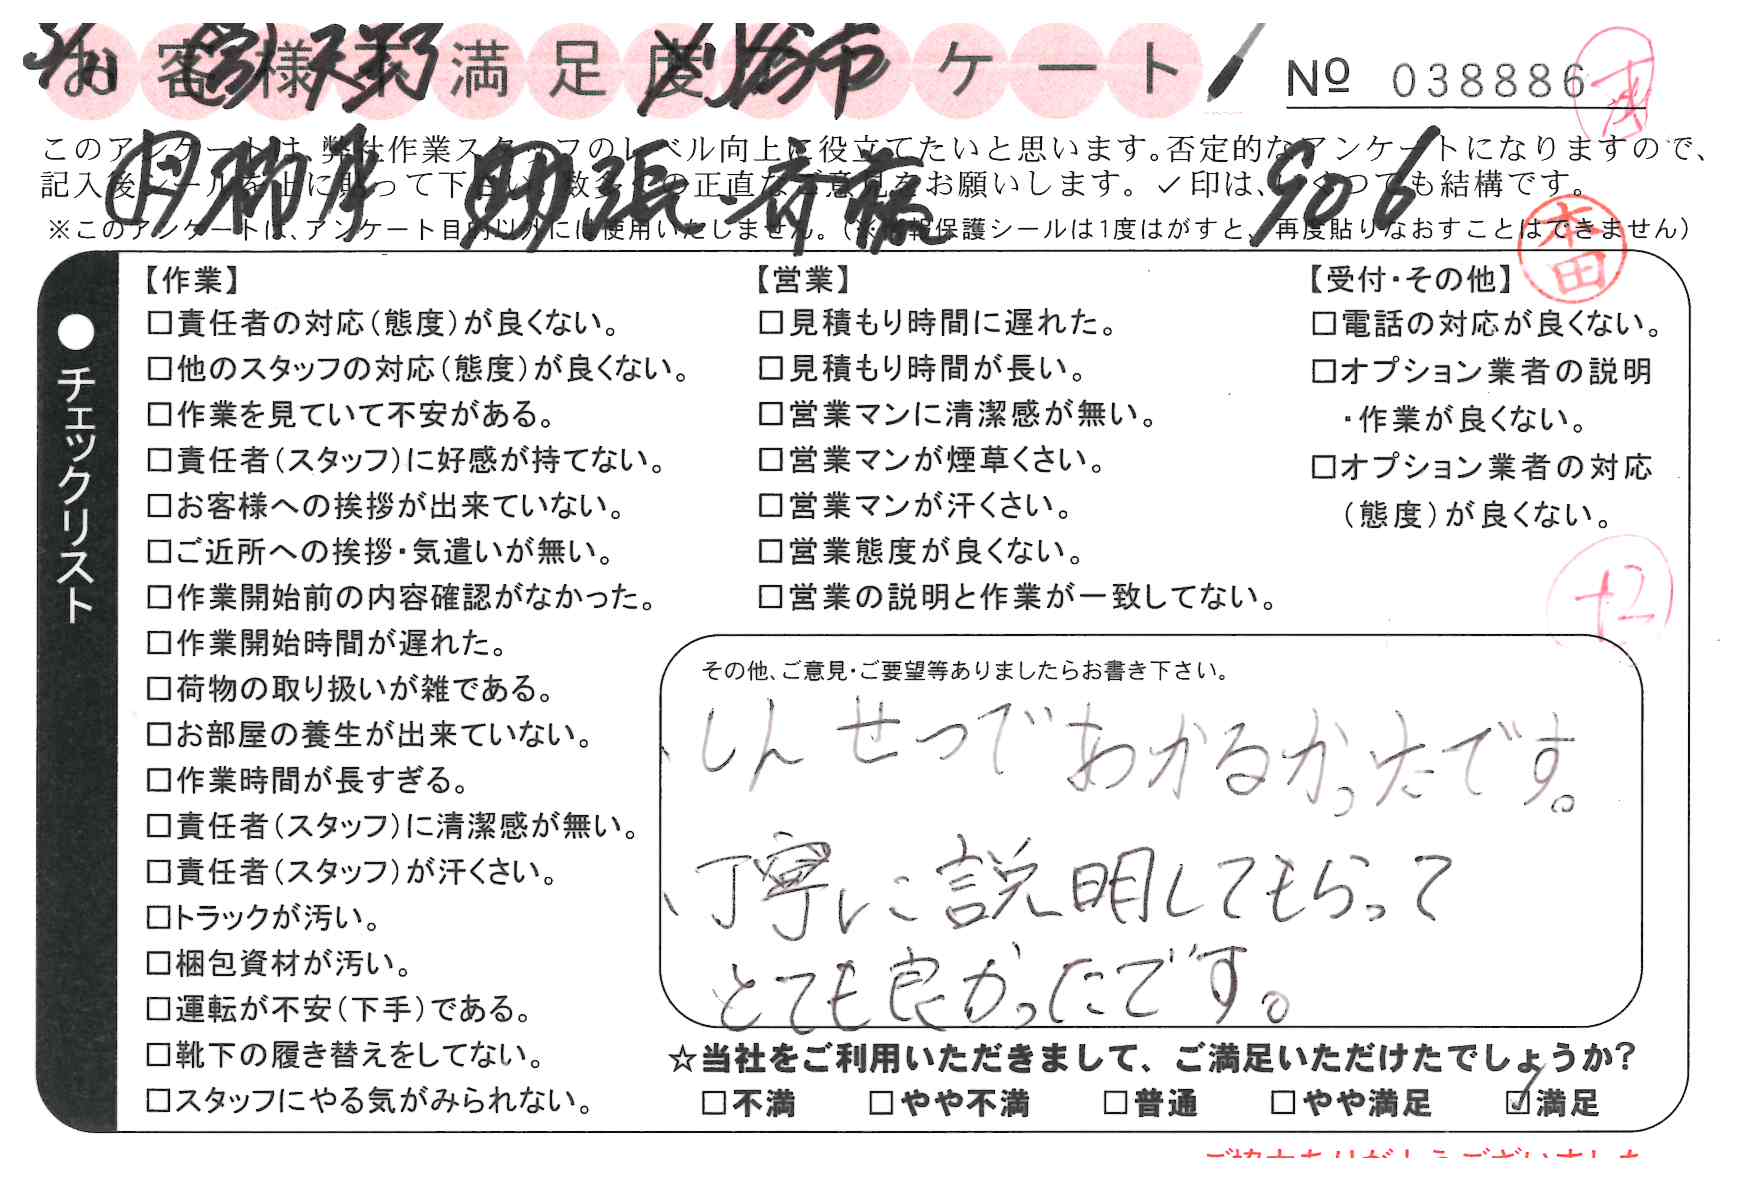 お客様不満足度アンケート
№ 038886
このアンケートは、弊社作業スタッフのレベル向上に役立てたいと思います。否定的なアンケートになりますので、
記入後シールを上に貼って下さい。数多くの正直なご意見をお願いします。✓印は、いくつでも結構です。
906
本田
※このアンケートは、アンケート目的以外には使用いたしません。(※情報保護シールは1度はがすと、再度貼りなおすことはできません)
●チェックリスト
【作業】
□責任者の対応(態度)が良くない。
□他のスタッフの対応(態度)が良くない。
□作業を見ていて不安がある。
□責任者(スタッフ)に好感が持てない。
□お客様への挨拶が出来ていない。
□ご近所への挨拶・気遣いが無い。
□作業開始前の内容確認がなかった。
□作業開始時間が遅れた。
□荷物の取り扱いが雑である。
□お部屋の養生が出来ていない。
□作業時間が長すぎる。
□責任者(スタッフ)に清潔感が無い。
□責任者(スタッフ)が汗くさい。
□トラックが汚い。
□梱包資材が汚い。
□運転が不安(下手)である。
□靴下の履き替えをしてない。
□スタッフにやる気がみられない。
【営業】
□見積もり時間に遅れた。
□見積もり時間が長い。
□営業マンに清潔感が無い。
□営業マンが煙草くさい。
□営業マンが汗くさい。
□営業態度が良くない。
□営業の説明と作業が一致してない。
【受付・その他】
□電話の対応が良くない。
□オプション業者の説明
・作業が良くない。
□オプション業者の対応
(態度)が良くない。
その他、ご意見・ご要望等ありましたらお書き下さい。
、しんせつであかるかったです。
、丁寧に説明してもらって
とても良かったです。
☆当社をご利用いただきまして、ご満足いただけたでしょうか?
□不満 □やや不満 □普通 □やや満足 ☑満足
ご協力ありがとうございました